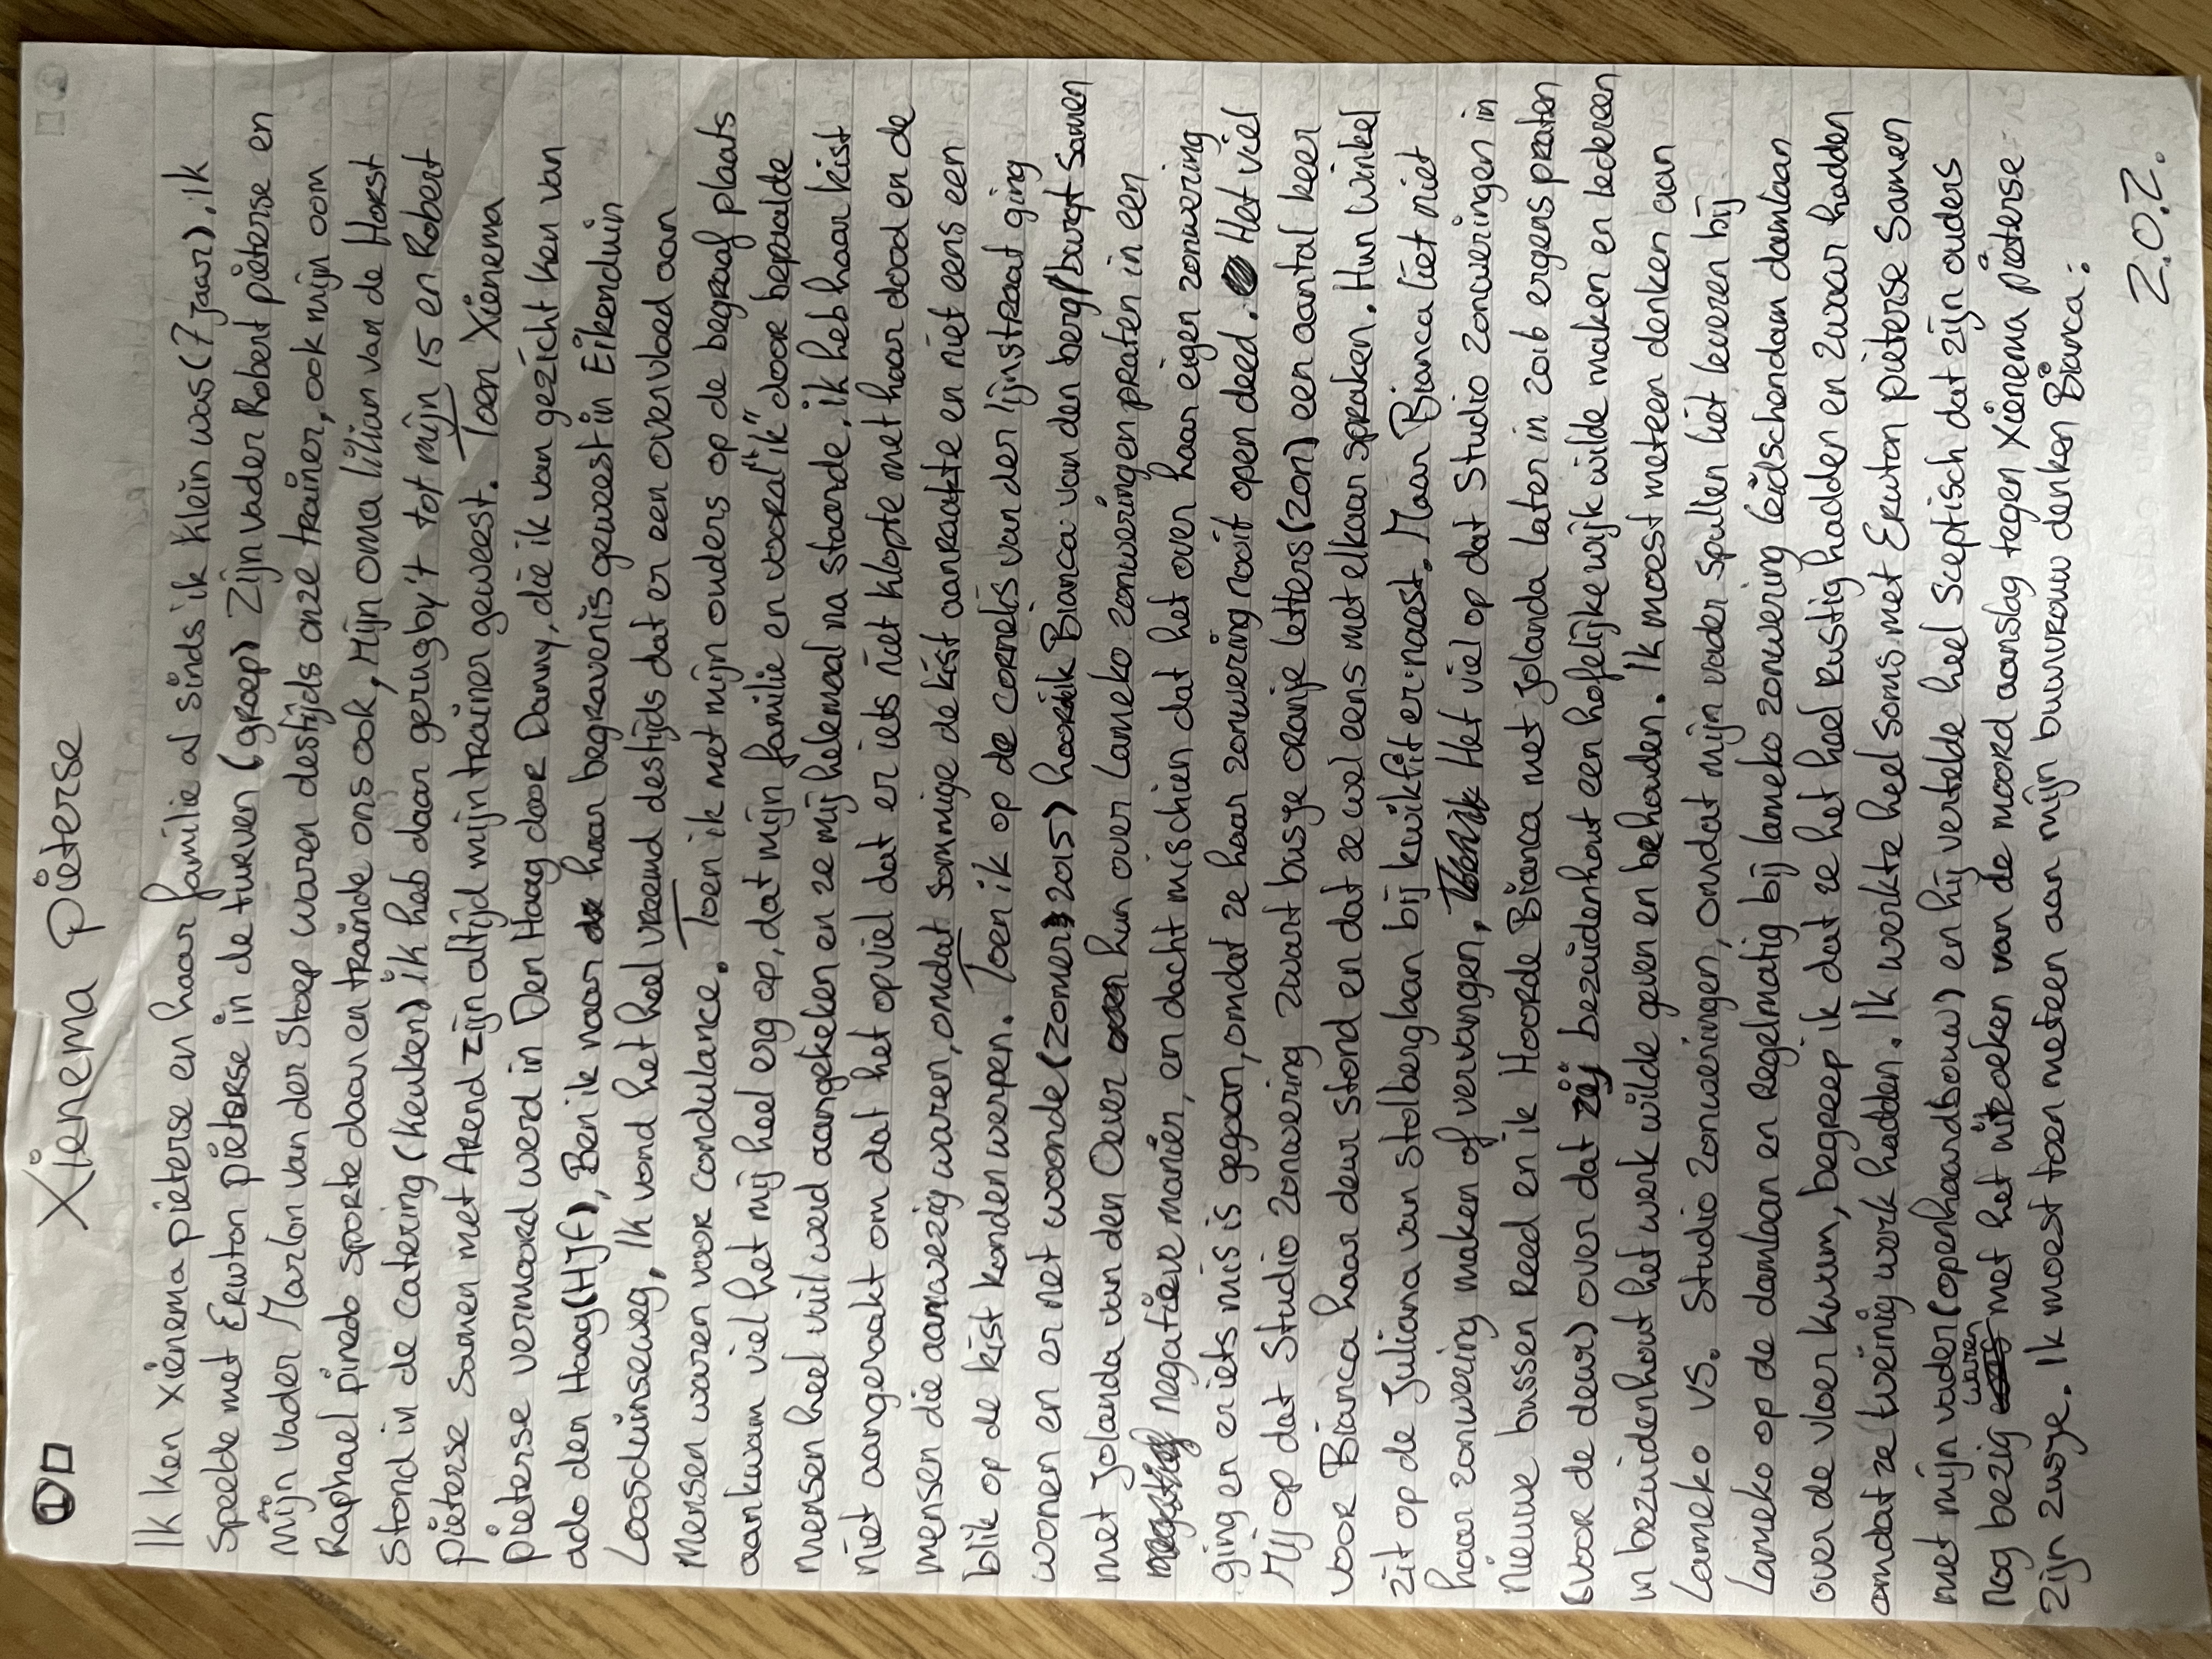 ① □
Xienema pieterse
Ik ken Xienema pieterse en haar familie al sinds ik klein was (7 jaar), ik
speelde met Erwton pieterse in de turven (groep) Zijn vader Robert pieterse en
mijn vader Marlon van der Stoep waren destijds onze trainer, ook mijn oom
Raphael pinedo sporte daar en trainde ons ook, Mijn oma lilian van de Horst
stond in de catering (keuken) ik heb daar gerugby't tot mijn 15 en Robert
pieterse samen met Arend zijn altijd mijn trainer geweest. Toen Xienema
pieterse vermoord werd in Den Haag door Danny, die ik van gezicht ken van
ado den Haag (Hijf), Ben ik naar haar begravenis geweest in Eikenduin
Loosduinseweg, Ik vond het heel vreemd destijds dat er een overvloed aan
Mensen waren voor condulance. Toen ik met mijn ouders op de begraaf plaats
aankwam viel het mij heel erg op, dat mijn familie en vooral "ik" door bepaalde
mensen heel vuil werd aangekeken en ze mij helemaal na staarde, ik heb haar kist
niet aangeraakt om dat het opviel dat er iets niet klopte met haar dood en de
mensen die aanwezig waren, omdat sommige de kist aanraakte en niet eens een
blik op de kist konden werpen. Toen ik op de cornelis van der lijnstraat ging
wonen en er net woonde (zomer 2015) hoorde ik Bianca van den berg/burgt samen
met jolanda van den Oever hun over Lameko zonweringen praten in een
negatieve manier, en dacht mischien dat het over haar eigen zonwering
ging en er iets mis is gegaan, omdat ze haar zonwering nooit open deed. Het viel
Mij op dat Studio Zonwering zwart busje oranje letters (zon) een aantal keer
voor Bianca haar deur stond en dat ze wel eens met elkaar spraken. Hun winkel
zit op de Juliana van stolbergbaan bij kwikfit er naast. Maar Bianca liet niet
haar zonwering maken of vervangen. Het viel op dat Studio Zonweringen in
nieuwe bussen Reed en ik Hoorde Bianca met jolanda later in 2016 ergens praten
(voor de deur) over dat zij bezuidenhout een hoflijke wijk wilde maken en iedereen
in bezuidenhout het werk wilde geven en behouden. Ik moest meteen denken aan
Lameko VS. Studio Zonweringen, omdat mijn vader spullen liet leveren bij
Lameko op de damlaan en Regelmatig bij lameko zonwering leidschendam damlaan
over de vloer kwam, begreep ik dat ze het heel Rustig hadden en zwaar hadden
omdat ze weinig werk hadden. Ik werkte heel soms met Erwton pieterse samen
met mijn vader (openhaardbouw) en hij vertelde heel sceptisch dat zijn ouders
nog bezig waren met het uitzoeken van de moord aanslag tegen Xienema pieterse
zijn zusje. Ik moest toen meteen aan mijn buurvrouw denken Bianca:
Z.O.Z.